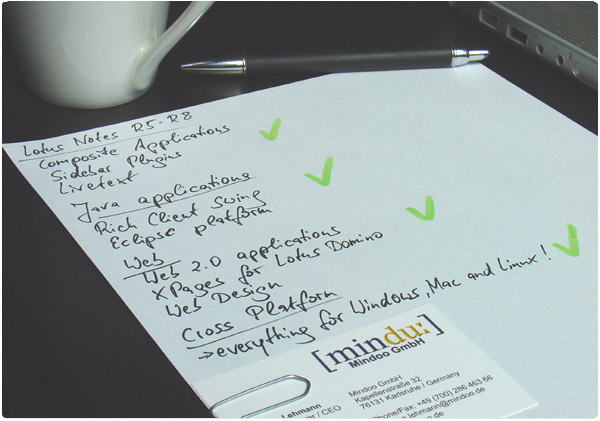 Lotus Notes R5-R8
Composite Applications
Sidebar Plugins
Livetext
Java applications
Rich Client Swing
Eclipse platform
Web
Web 2.0 applications
XPages for Lotus Domino
Web Design
Cross Platform
->everything for Windows, Mac and Linux!
[mindu:]
Mindoo GmbH
Mindoo GmbH
Kapellenstraße 32
76131 Karlsruhe / Germany
Phone/Fax: +49 (700) 286 463 66
lehmann@mindoo.de
Lehmann
/ CEO